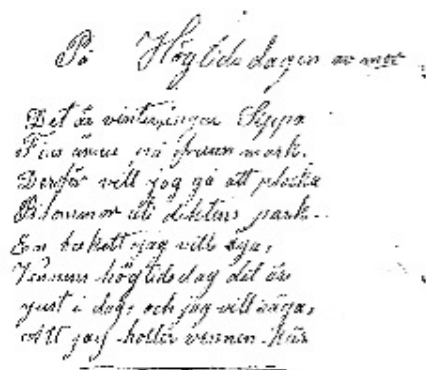 På Högtidsdagen av mor
Det är vinter, ingen Sippa
Fins ännu på frusen mark.
Derför vill jag gå att plocka
Blommor uti diktens park.
En bukett jag vill
Vännens högtidsdag det är
just i dag, och jag vill säga,
Att jag håller vännen kär